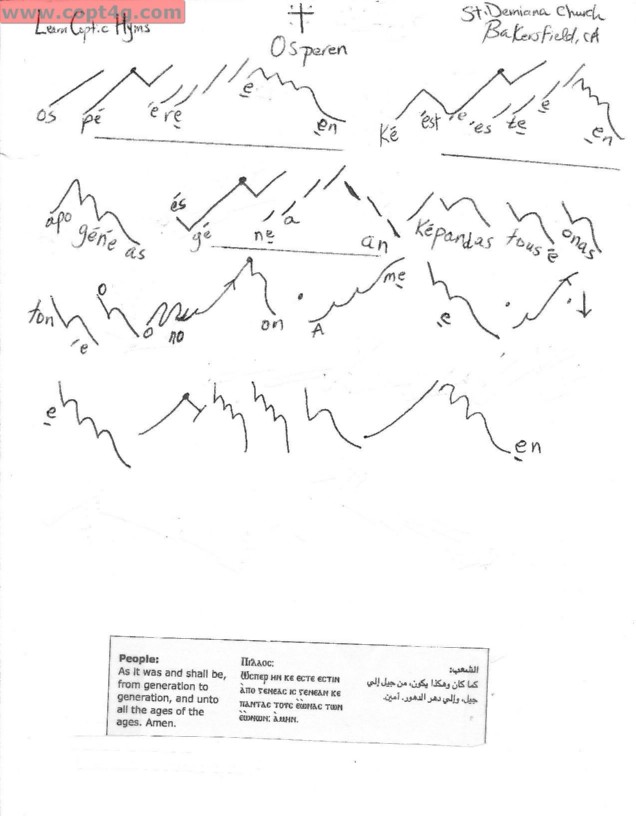 www.copt4g.com
Learn Coptic Hyms
St. Demiana Church
Bakersfield, CA
Osperen
os pé é re e en
Ké ést e es te e en
ápo géné as
és gé ne a an
Képandas tous é onas
ton é o o no on A me e
e en
People:
As it was and shall be,
from generation to
generation, and unto
all the ages of the
ages. Amen.
Ⲡⲓⲗⲁⲟⲥ:
Ⲱⲥⲡⲉⲣ ⲏⲛ ⲕⲉ ⲉⲥⲧⲉ ⲉⲥⲧⲓⲛ
ⲁ̀ⲡⲟ ⲅⲉⲛⲉⲁⲥ ⲓⲥ ⲅⲉⲛⲉⲁⲛ ⲕⲉ
ⲡⲁⲛⲧⲁⲥ ⲧⲟⲩⲥ ⲉ̀ⲱ̀ⲛⲁⲥ ⲧⲱⲛ
ⲉ̀ⲱ̀ⲛⲱⲛ: ⲁ̀ⲙⲏⲛ.
الشعب:
كما كان وهكذا يكون، من جيل إلي
جيل، وإلي دهر الدهور. آمين.